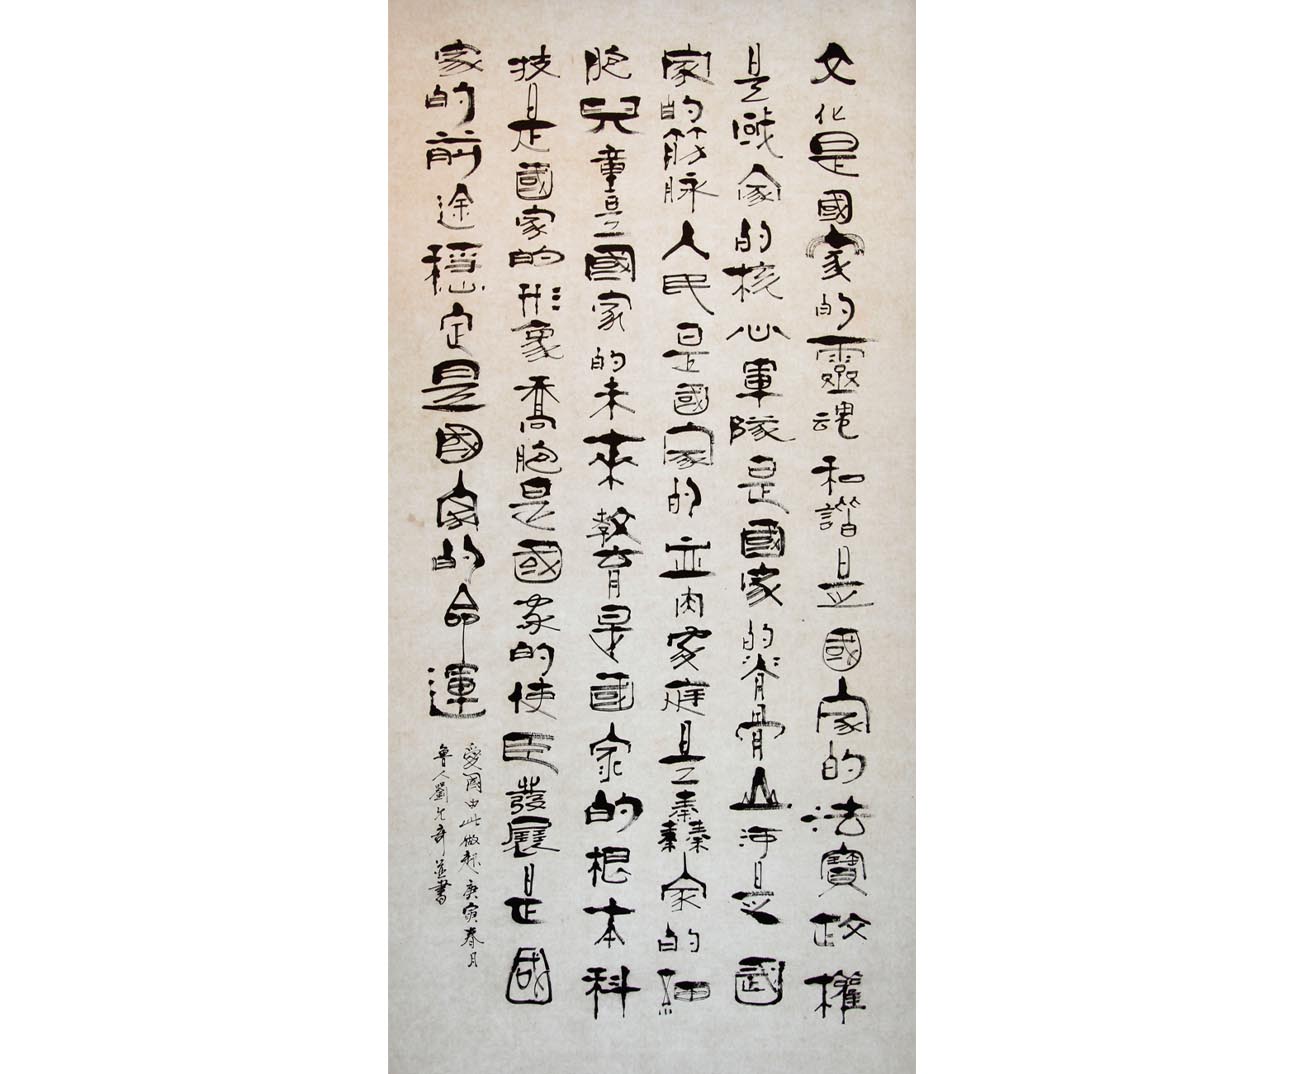 文化是國家的靈魂和諧是國家的法寶政權
是國家的核心軍隊是國家的脊骨山河是國
家的筋脉人民是國家的血肉家庭是家的細
胞兒童是國家的未來教育是國家的根本科
技是國家的形象喬胞是國家的使臣發展是國
家的前途穩定是國家的命運
愛國由此做起庚寅春月
魯人劉並書